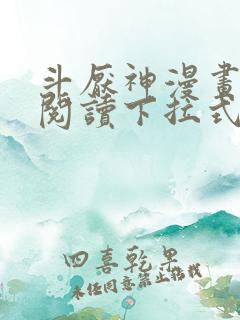 斗厭神漫畫
閱讀下拉式
四喜乾果
未經同意禁止搭載